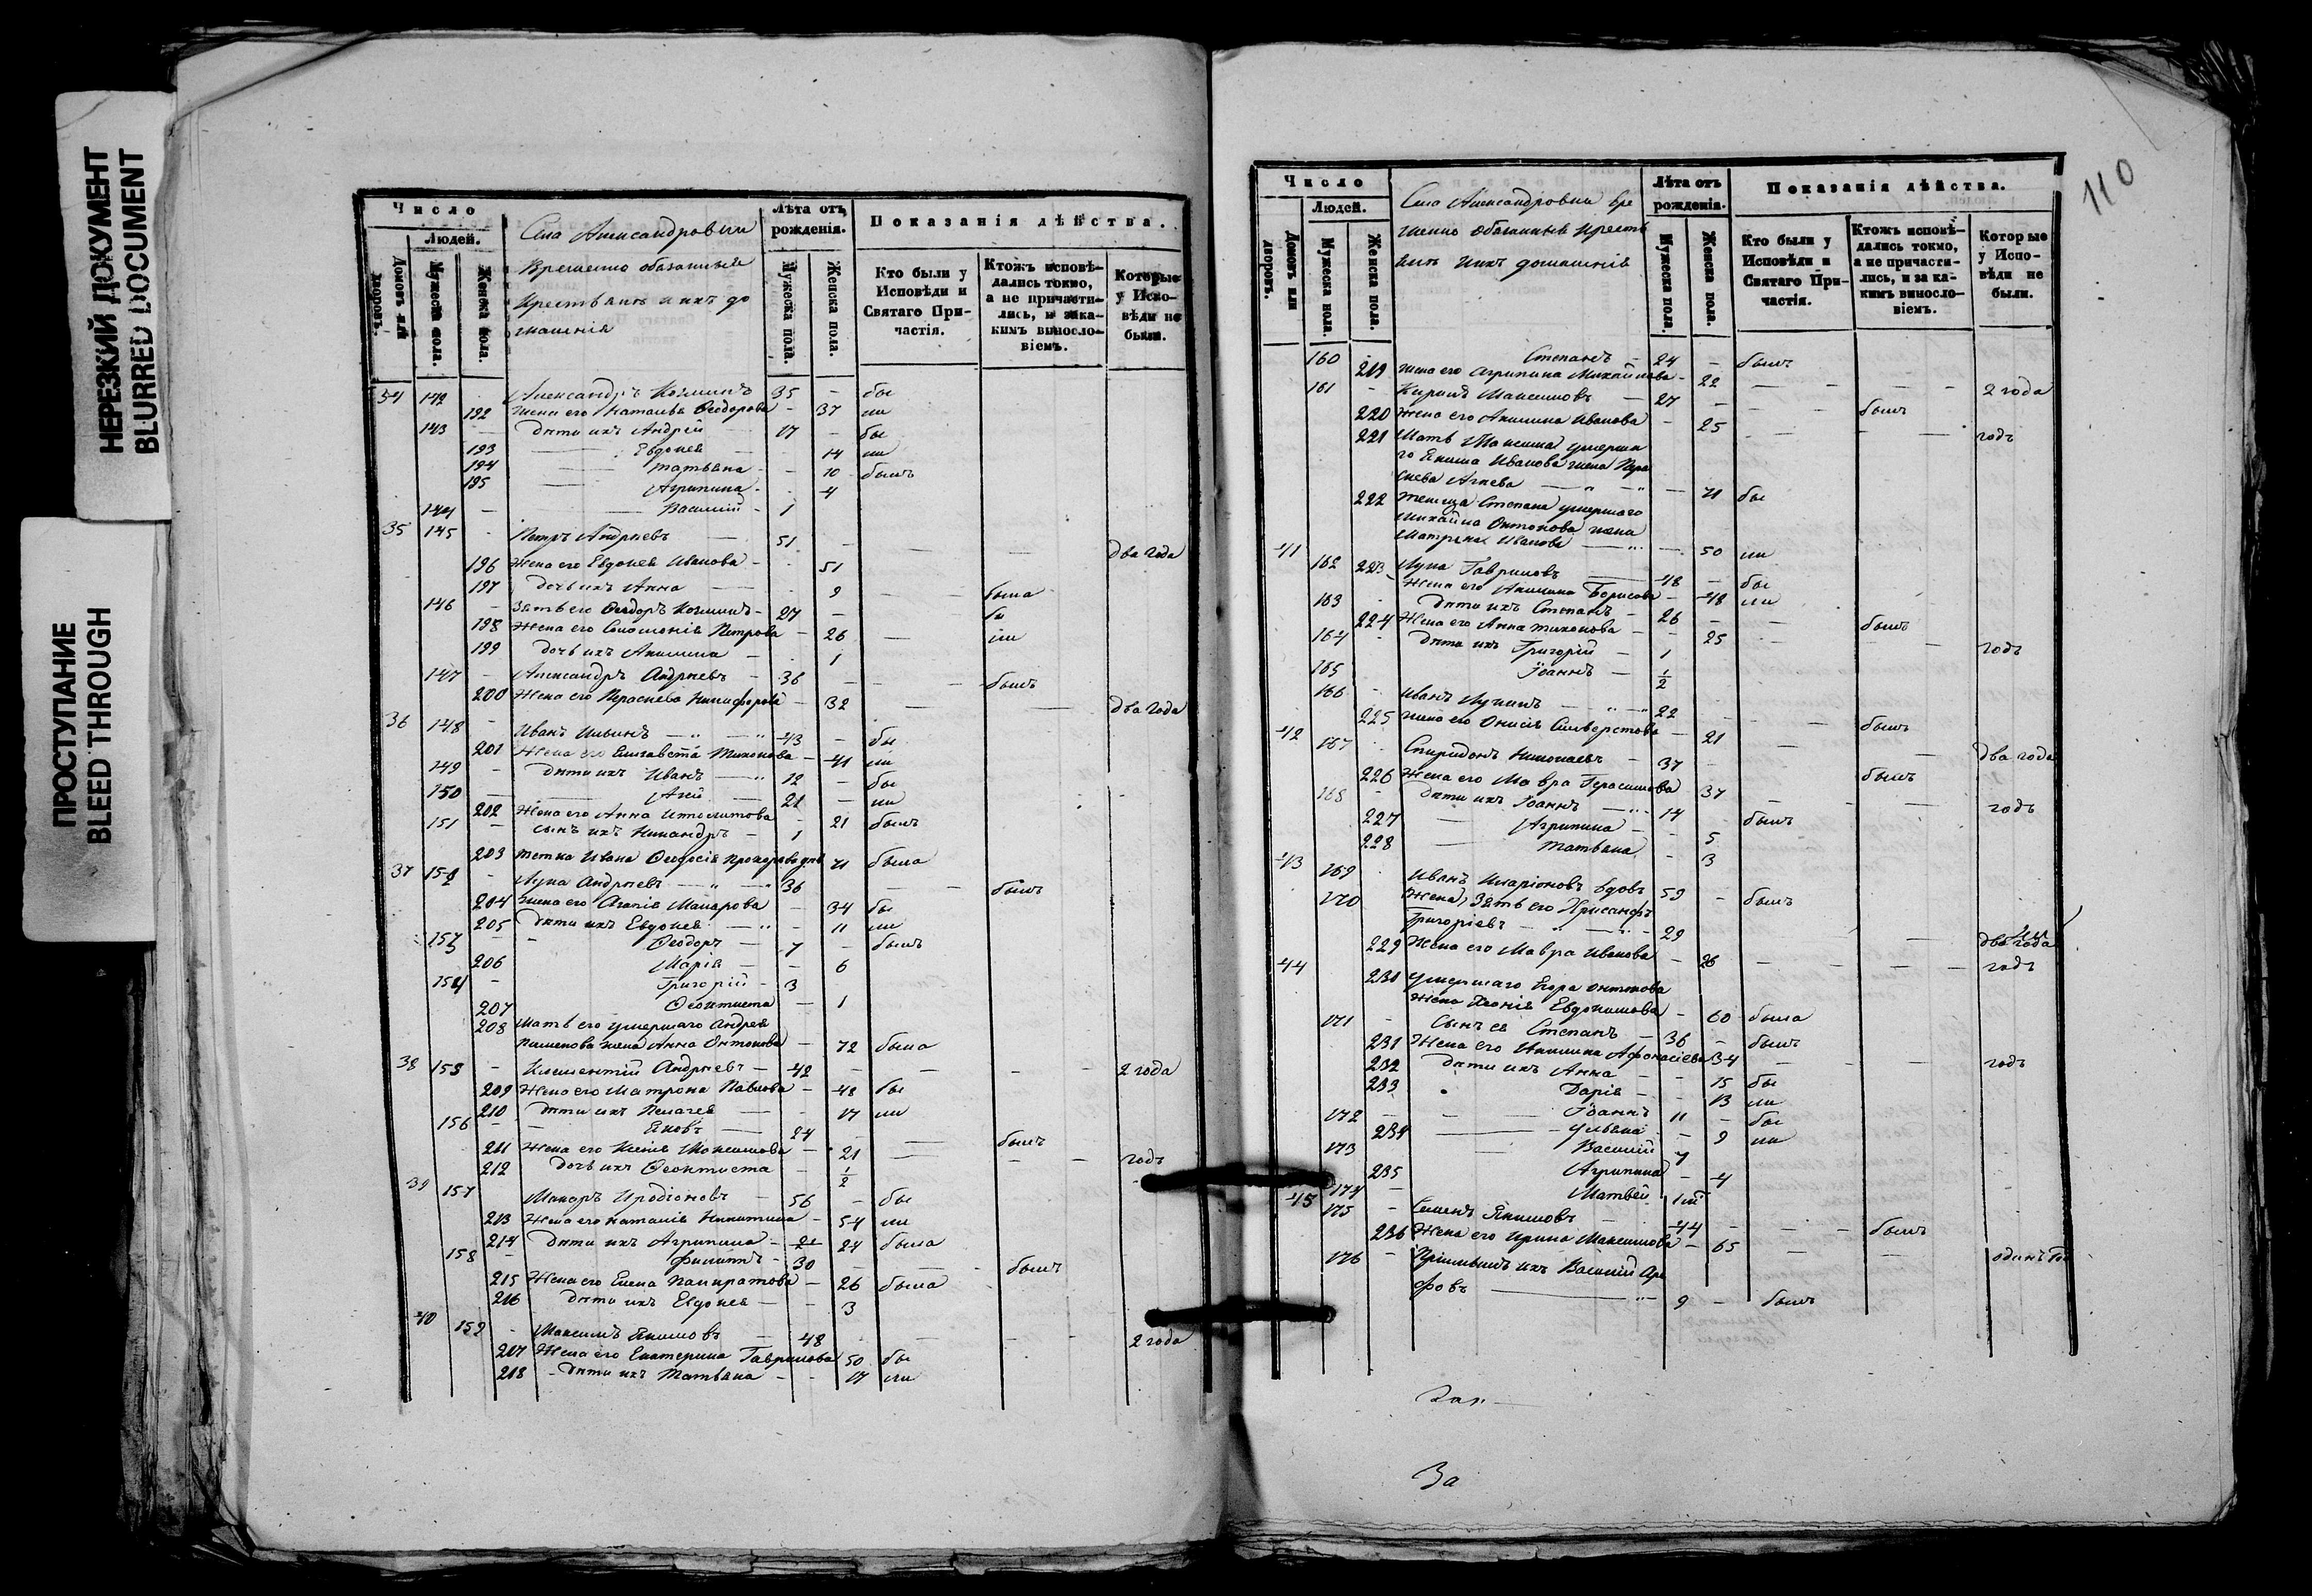 НЕРЕЗКИЙ ДОКУМЕНТ
BLURRED DOCUMENT
ПРОСТУПАНИЕ
BLEED THROUGH
Число
Людей.
Домовъ или дворовъ.
Мужеска пола.
Женска пола.
Села Александровки
Временно обязанныя
Крестьяне и ихъ до
машнія
Лѣта отъ рожденія.
Мужеска пола.
Женска пола.
Показанія дѣйства.
Кто были у Исповѣди и Святаго Причастія.
Ктожъ исповѣдались токмо, а не причастились, и за какимъ винословіемъ.
Которые у Исповѣди не были.
34 142 Александръ Козминъ 35 - бы
192 Жена его Наталья Ѳеодорова - 37 ли
143 - Дѣти ихъ Андрей 17 - бы
193 Евдокея - 14 ли
194 Татьяна - 10 былъ
195 Агрипина - 4
144 - Василий - 1
35 145 - Петръ Андреевъ 51 - - - два года
196 Жена его Евдокея Иванова - 51
197 дочь ихъ Анна - 9 - была
146 - Зять его Ѳеодоръ Козминъ - 27 - бы
198 Жена его Соломонія Петрова - 26 - ли
199 дочь ихъ Акилина - 1
147 - Александръ Андреевъ - 36 - - былъ
200 Жена его Праскева Никифорова - 32 - - два года
36 148 - Иванъ Ильинъ 43 - бы
201 Жена его Елисавета Тихонова - 41 ли
149 - дѣти ихъ Иванъ 12 - бы
150 - 21 - ли
202 Жена его Анна - 21 былъ
151 - сынъ ихъ Никандръ - 1
203 тетка Ивана Ѳеодосія 71 была
37 152 - Лука Андреевъ 36 - - былъ
204 Жена его Агапія Макарова - 34 бы
205 Дѣти ихъ Евдокея - 11 ли
153 - Ѳеодоръ - 7 - былъ
206 Марія - - 6
154 - Григорій - 3
207 Ѳеоктиста - 1
208 Мать его умершаго Андрея
жена Анна Антонова - 72 была
38 155 - Климентій Андреевъ - 42 - - - 2 года
209 Жена его Матрона Павлова - 48 бы
210 Дѣти ихъ Пелагея - 17 ли
156 - Яковъ 24 - - былъ
211 Жена его Ксенія Максимова - 21 - - годъ
212 дочь ихъ Ѳеоктиста - 1/2
39 157 Макаръ Иродіоновъ - 56 - бы
213 Жена его Наталія Никитина - 54 ли
214 Дѣти ихъ Агрипина - 24 была
158 - Филиппъ - 30 - - былъ
215 Жена его Елена Панкратова - 26 была
216 дѣти ихъ Евдокея - - 3
40 159 - Максимъ Якимовъ 48 - - - 2 года
217 Жена его Екатерина Гаврилова 50 бы
218 - Дѣти ихъ Татьяна - - 17 ли
110
Число
Людей.
Домовъ или дворовъ.
Мужеска пола.
Женска пола.
Села Александровки вре
менно обязанныя Кресть
яне ихъ домашнія
Лѣта отъ рожденія.
Мужеска пола.
Женска пола.
Показанія дѣйства.
Кто были у Исповѣди и Святаго Причастія.
Ктожъ исповѣдались токмо, а не причастились, и за какимъ винословіемъ.
Которые у Исповѣди не были.
160 Степанъ - 24 - былъ
219 Жена его Агрипина Михайлова - 22 - - - 2 года
161 - Кирилъ Максимовъ - 27 - - былъ
220 Жена его Акилина Иванова - 25 - - годъ
221 Мать Максима умерша
го Якима Иванова жена Пра
скева - 71 бы
222 Степана умершаго
Михайла Онтонова жена
Матрена Иванова - 50 ли
41 162 Лука Гавриловъ 48 - бы
223 Жена его Акилина Борисова - 48 ли
163 Дѣти ихъ Степанъ - 26 - - былъ
224 Жена его Анна Тихонова - - 25 - - годъ
164 - дѣти ихъ Григорій - 1
165 Іоаннъ - 1/2
166 - Иванъ Лукинъ 22 - - былъ
225 Жена его Онисія Сильверстова - 21 - - два года
42 167 - Спиридонъ Николаевъ - 37 - - былъ
226 Жена его Мавра Герасимова 37 - - годъ
168 - дѣти ихъ Іоаннъ 14 - былъ
227 Агрипина - - 5
228 Татьяна - 3
43 169 - Иванъ Иларіоновъ вдовъ 59 - былъ
170 Зять его Хрисанфъ
Григоріевъ 29 - два года
229 Жена его Мавра Иванова - 26 - - - годъ
44 230 умершаго Егора Онтонова
Жена Ксенія Евдокимова - 60 была
171 - Сынъ ея Степанъ - 36 - былъ
231 Жена его Акилина Афонасіева 34 - - годъ
232 дѣти ихъ Анна - - 15 бы
233 Дарія - - 13 ли
172 - - Іоаннъ 11 - бы
234 - Ульяна - 9 ли
173 Василий 7
235 Агрипина - 4
174 - Матвей 1
45 175 - Семенъ Якимовъ - 44 - - былъ
236 Жена его Ирина Максимова - 65 - - одинъ го
176 - ихъ Василий
9 - былъ
За